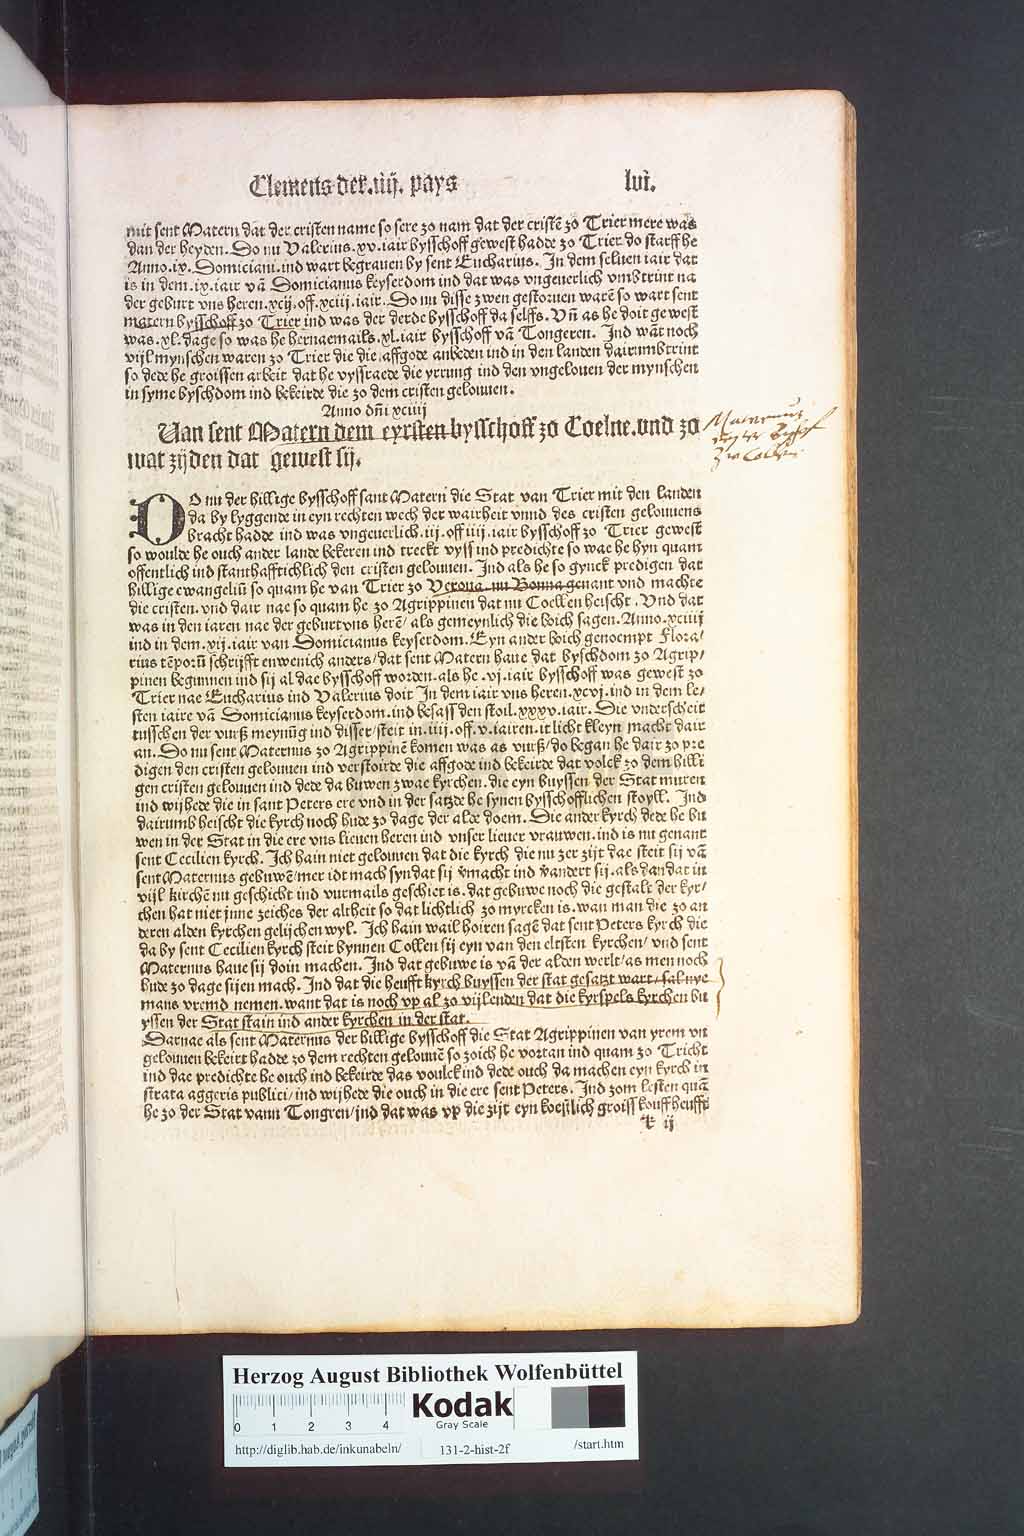 Clemens der .iiij. pays
lvi.
mit sent Matern dat der cristen name so sere zo nam dat der cristẽ zo Trier mere was
dan der heyden. Do nu Valerius .xv. iair bysschoff gewest hadde zo Trier do starff he
Anno .ix. Domiciani. ind wart begrauen by sent Eucharius. In dem seluen iair dat
is in dem .ix. iair vã Domicianus keyserdom ind dat was vngeuerlich vmbtrint na
der geburt vns heren .xcij. off .xciij. iair. Do nu disse zwen gestoruen warẽ so wart sent
matern bysschoff zo Trier ind was der derde bysschoff da selffs. Vñ as he doit gewest
was .xl. dage so was he hernaemails .xl. iair bysschoff vã Tongeren. Ind wãt noch
vijl mynschen waren zo Trier die die affgode anbeden ind in den landen dairumbtrint
so dede he groissen arbeit dat he vyssraede die yrrung ind den vngelouen der mynschen
in syme byschdom ind bekeirde die zo dem cristen gelouuen.
Anno dñi xciiij
Uan sent Matern dem eyrsten bysschoff zo Coelne. vnd zo
wat zijden dat gewest sij.
Maternus
Zu Collen
DO nu der hillige bysschoff sant Matern die Stat van Trier mit den landen
da by lyggende in eyn rechten wech der wairheit vnnd des cristen gelouuens
bracht hadde ind was vngeuerlich .iij. off iiij. iair bysschoff zo Trier gewest
so woulde he ouch ander lande bekeren ind treckt vyss ind predichte so wae he hyn quam
offentlich ind stanthafftichlich den cristen gelouuen. Ind als he so gynck predigen dat
hillige ewangeliũ so quam he van Trier zo Verona. nu Bonna genant vnd machte
die cristen. vnd dair nae so quam he zo Agrippinen dat nu Coellen heischt. Vnd dat
was in den iaren nae der geburt vns herẽ / als gemeynlich die boich sagen. Anno. xciiij
ind in dem .xij. iair van Domicianus keyserdom. Eyn ander boich genoempt Flora/
rius tẽporũ schrijfft enwenich anders / dat sent Matern haue dat byschdom zo Agrip/
pinen begunnen ind sij al dae bysschoff worden. als he .vj. iair bysschoff was gewest zo
Trier nae Eucharius ind Valerius doit In dem iair vns heren .xcvj. ind in dem le/
sten iaire vã Domicianus keyserdom. ind besass den stoil .xxxv. iair. Die vnderscheit
tusschen der vurß meynũg ind disser / steit in .iiij. off .v. iairen. it licht kleyn macht dair
an. Do nu sent Maternus zo Agrippinẽ komen was as vurß / do began he dair zo pre
digen den cristen gelouuen ind verstoirde die affgode ind bekeirde dat volck zo dem hilli
gen cristen gelouuen ind dede da buwen zwae kyrchen. die eyn buyssen der Stat muren
ind wijhede die in sant Peters ere vnd in der satzde he synen bysschofflichen stoyll. Ind
dairumb heischt die kyrch noch hude zo dage der alde doem. Die ander kyrch dede he bu
wen in der Stat in die ere vns lieuen heren ind vnser lieuer vrauwen. ind is nu genant
sent Cecilien kyrch. Ich hain niet gelouuen dat die kyrch die nu zer zijt dae steit sij vã
sent Maternus gebuwẽ / mer idt mach syn dat sij v̄macht ind v̄andert sij. als dan dat in
vijl kirchẽ nu geschicht ind vurmails geschiet is. dat gebuwe noch die gestalt der kyr/
chen hat niet jnne zeiches der altheit so dat lichtlich zo myrcken is. wan man die zo an
deren alden kyrchen gelijchen wyl. Ich hain wail hoiren sagẽ dat sent Peters kyrch die
da by sent Cecilien kyrch steit bynnen Collen sij eyn van den eltsten kyrchen / vnd sent
Maternus haue sij doin machen. Ind dat gebuwe is vã der alden werlt / as men noch
hude zo dage sijen mach. Ind dat die heufft kyrch buyssen der stat gesatzt wart / sal nye
mans vremd nemen. want dat is noch vp al zo vijlenden dat die kyrspels kyrchen bu
yssen der Stat stain ind ander kyrchen in der stat.
Darnae als sent Maternus der hillige bysschoff die Stat Agrippinen van yrem vn
gelouuen bekeirt hadde zo dem rechten gelouuẽ so zoich he vortan ind quam zo Tricht
ind dae predichte he ouch ind bekeirde das voulck ind dede ouch da machen eyn kyrch in
strata aggeris publici / ind wijhede die ouch in die ere sent Peters. Ind zom lesten quã
he zo der Stat vann Tongren / jnd dat was vp die zijt eyn koeslich groiss kouff heufft
k ij
Herzog August Bibliothek Wolfenbüttel
0 1 2 3 4
Kodak
Gray Scale
http://diglib.hab.de/inkunabeln/ 131-2-hist-2f /start.htm